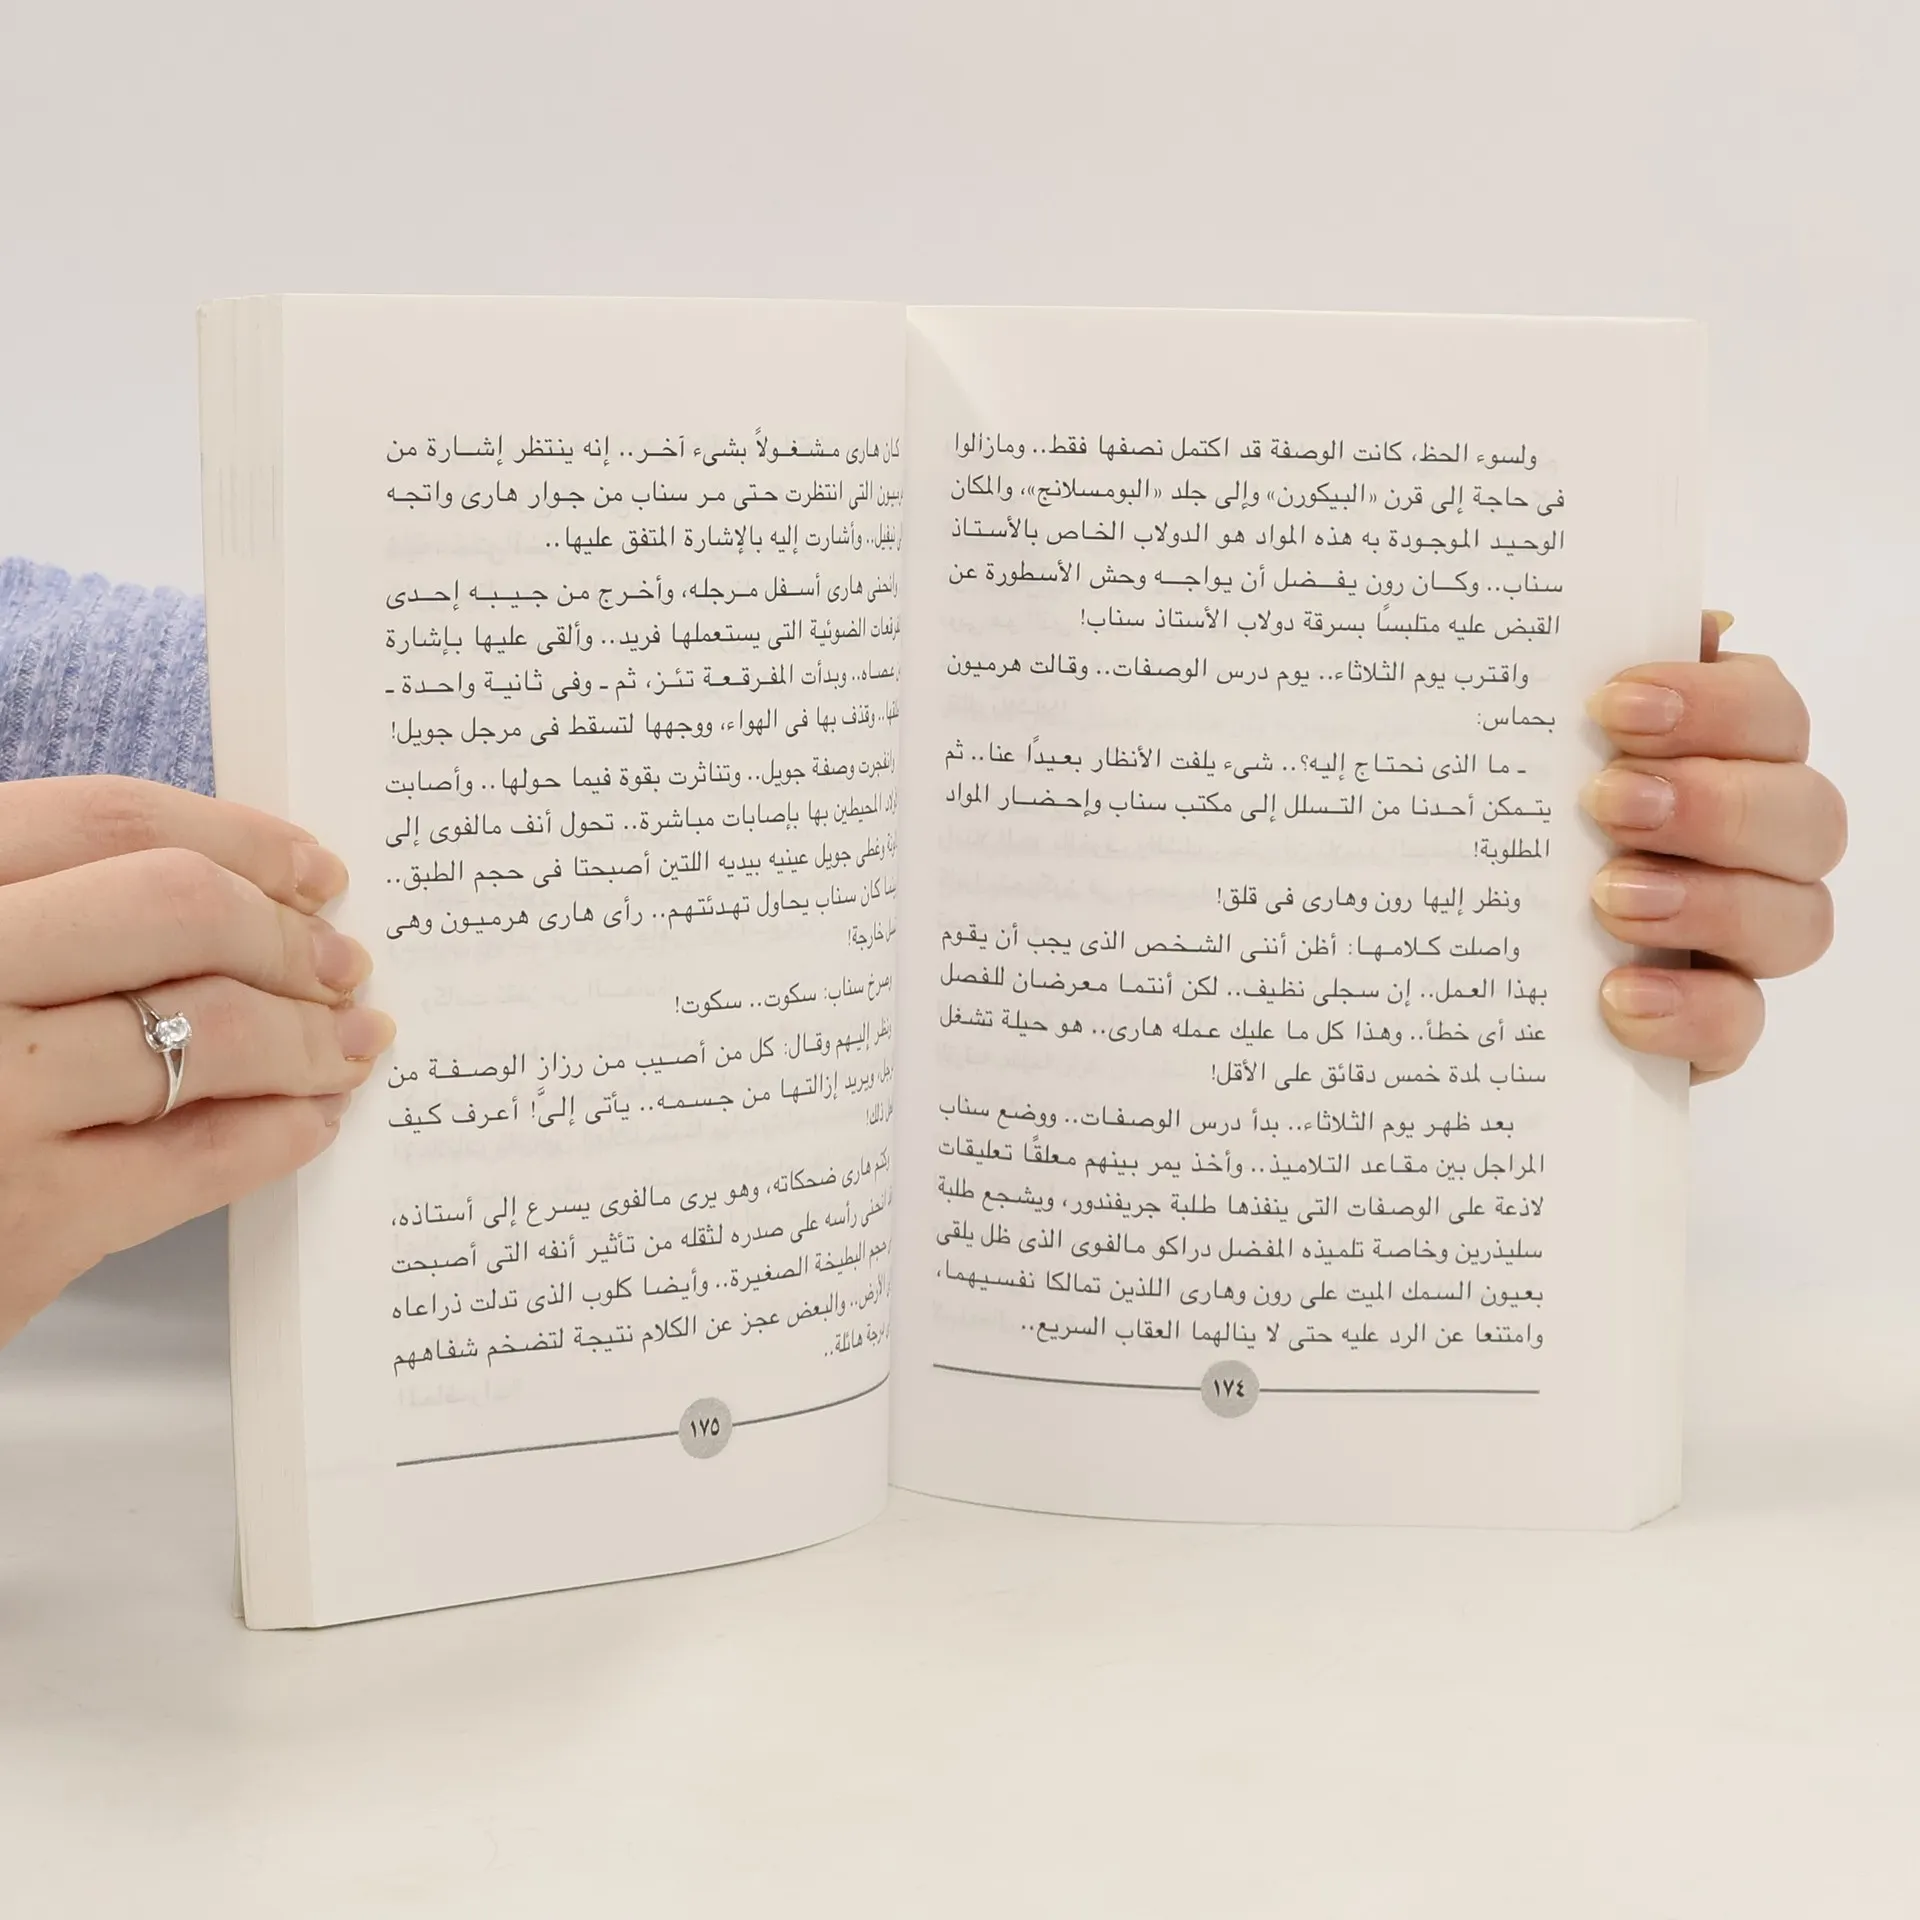 ولسوء الحظ، كانت الوصفة قد اكتمل نصفها فقط.. ومازالوا
فى حاجة إلى قرن «البيكورن» وإلى جلد «البومسلانج»، والمكان
الوحيد الموجودة به هذه المواد هو الدولاب الخاص بالأستاذ
سناب.. وكان رون يفضل أن يواجه وحش الأسطورة عن
القبض عليه متلبساً بسرقة دولاب الأستاذ سناب!
واقترب يوم الثلاثاء.. يوم درس الوصفات.. وقالت هرميون
بحماس:
ـ ما الذى نحتاج إليه؟.. شىء يلفت الأنظار بعيداً عنا.. ثم
يتمكن أحدنا من التسلل إلى مكتب سناب وإحضار المواد
المطلوبة!
ونظر إليها رون وهارى فى قلق!
واصلت كلامها: أظن أننى الشخص الذى يجب أن يقوم
بهذا العمل.. إن سجلى نظيف.. لكن أنتما معرضان للفصل
عند أى خطأ.. وهذا كل ما عليك عمله هارى.. هو حيلة تشغل
سناب لمدة خمس دقائق على الأقل!
بعد ظهر يوم الثلاثاء.. بدأ درس الوصفات.. ووضع سناب
المراجل بين مقاعد التلاميذ.. وأخذ يمر بينهم معلقًا تعليقات
لاذعة على الوصفات التى ينفذها طلبة جريفندور، ويشجع طلبة
سليذرين وخاصة تلميذه المفضل دراكو مالفوى الذى ظل يلقى
بعيون السمك الميت على رون وهارى اللذين تمالكا نفسيهما،
وامتنعا عن الرد عليه حتى لا ينالهما العقاب السريع..
١٧٤
كان هارى مشغولاً بشىء آخر.. إنه ينتظر إشارة من
التى انتظرت حتى مر سناب من جوار هارى واتجه
وأشارت إليه بالإشارة المتفق عليها..
وانحنى هارى أسفل مرجله، وأخرج من جيبه إحدى
الضوئية التى يستعملها فريد.. وألقى عليها بإشارة
عصاه.. وبدأت المفرقعة تئز، ثم ـ وفى ثانية واحدة ـ
وقذف بها فى الهواء، ووجهها لتسقط فى مرجل جويل!
وانفجرت وصفة جويل.. وتناثرت بقوة فيما حولها.. وأصابت
المحيطين بها بإصابات مباشرة.. تحول أنف مالفوى إلى
وغطى جويل عينيه بيديه اللتين أصبحتا فى حجم الطبق..
كان سناب يحاول تهدئتهم.. رأى هارى هرميون وهى
خارجة!
وصرخ سناب: سكوت.. سكوت!
ونظر إليهم وقال: كل من أصيب من رزاز الوصفة من
ويريد إزالتها من جسمه.. يأتى إلىَّ! أعرف كيف
ذلك!
هارى ضحكاته، وهو يرى مالفوى يسرع إلى أستاذه،
انحنى رأسه على صدره لثقله من تأثير أنفه التى أصبحت
حجم البطيخة الصغيرة.. وأيضا كلوب الذى تدلت ذراعاه
الأرض.. والبعض عجز عن الكلام نتيجة لتضخم شفاههم
هائلة..
١٧٥